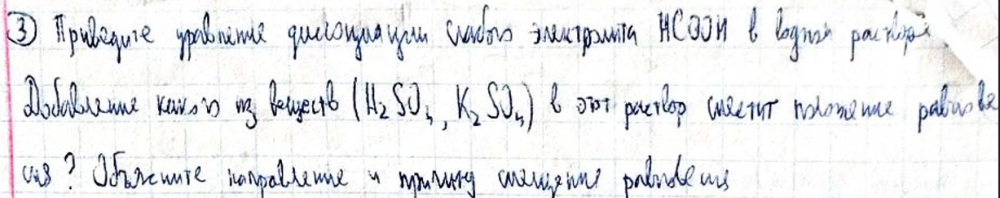 ③ Приведите уравнение диссоциации слабого электролита HCOOH в водном растворе
Добавление какого из веществ (H₂SO₄, K₂SO₄) в этот раствор сместит положение равнове
сия? Объясните направление и причину смещения равновесия